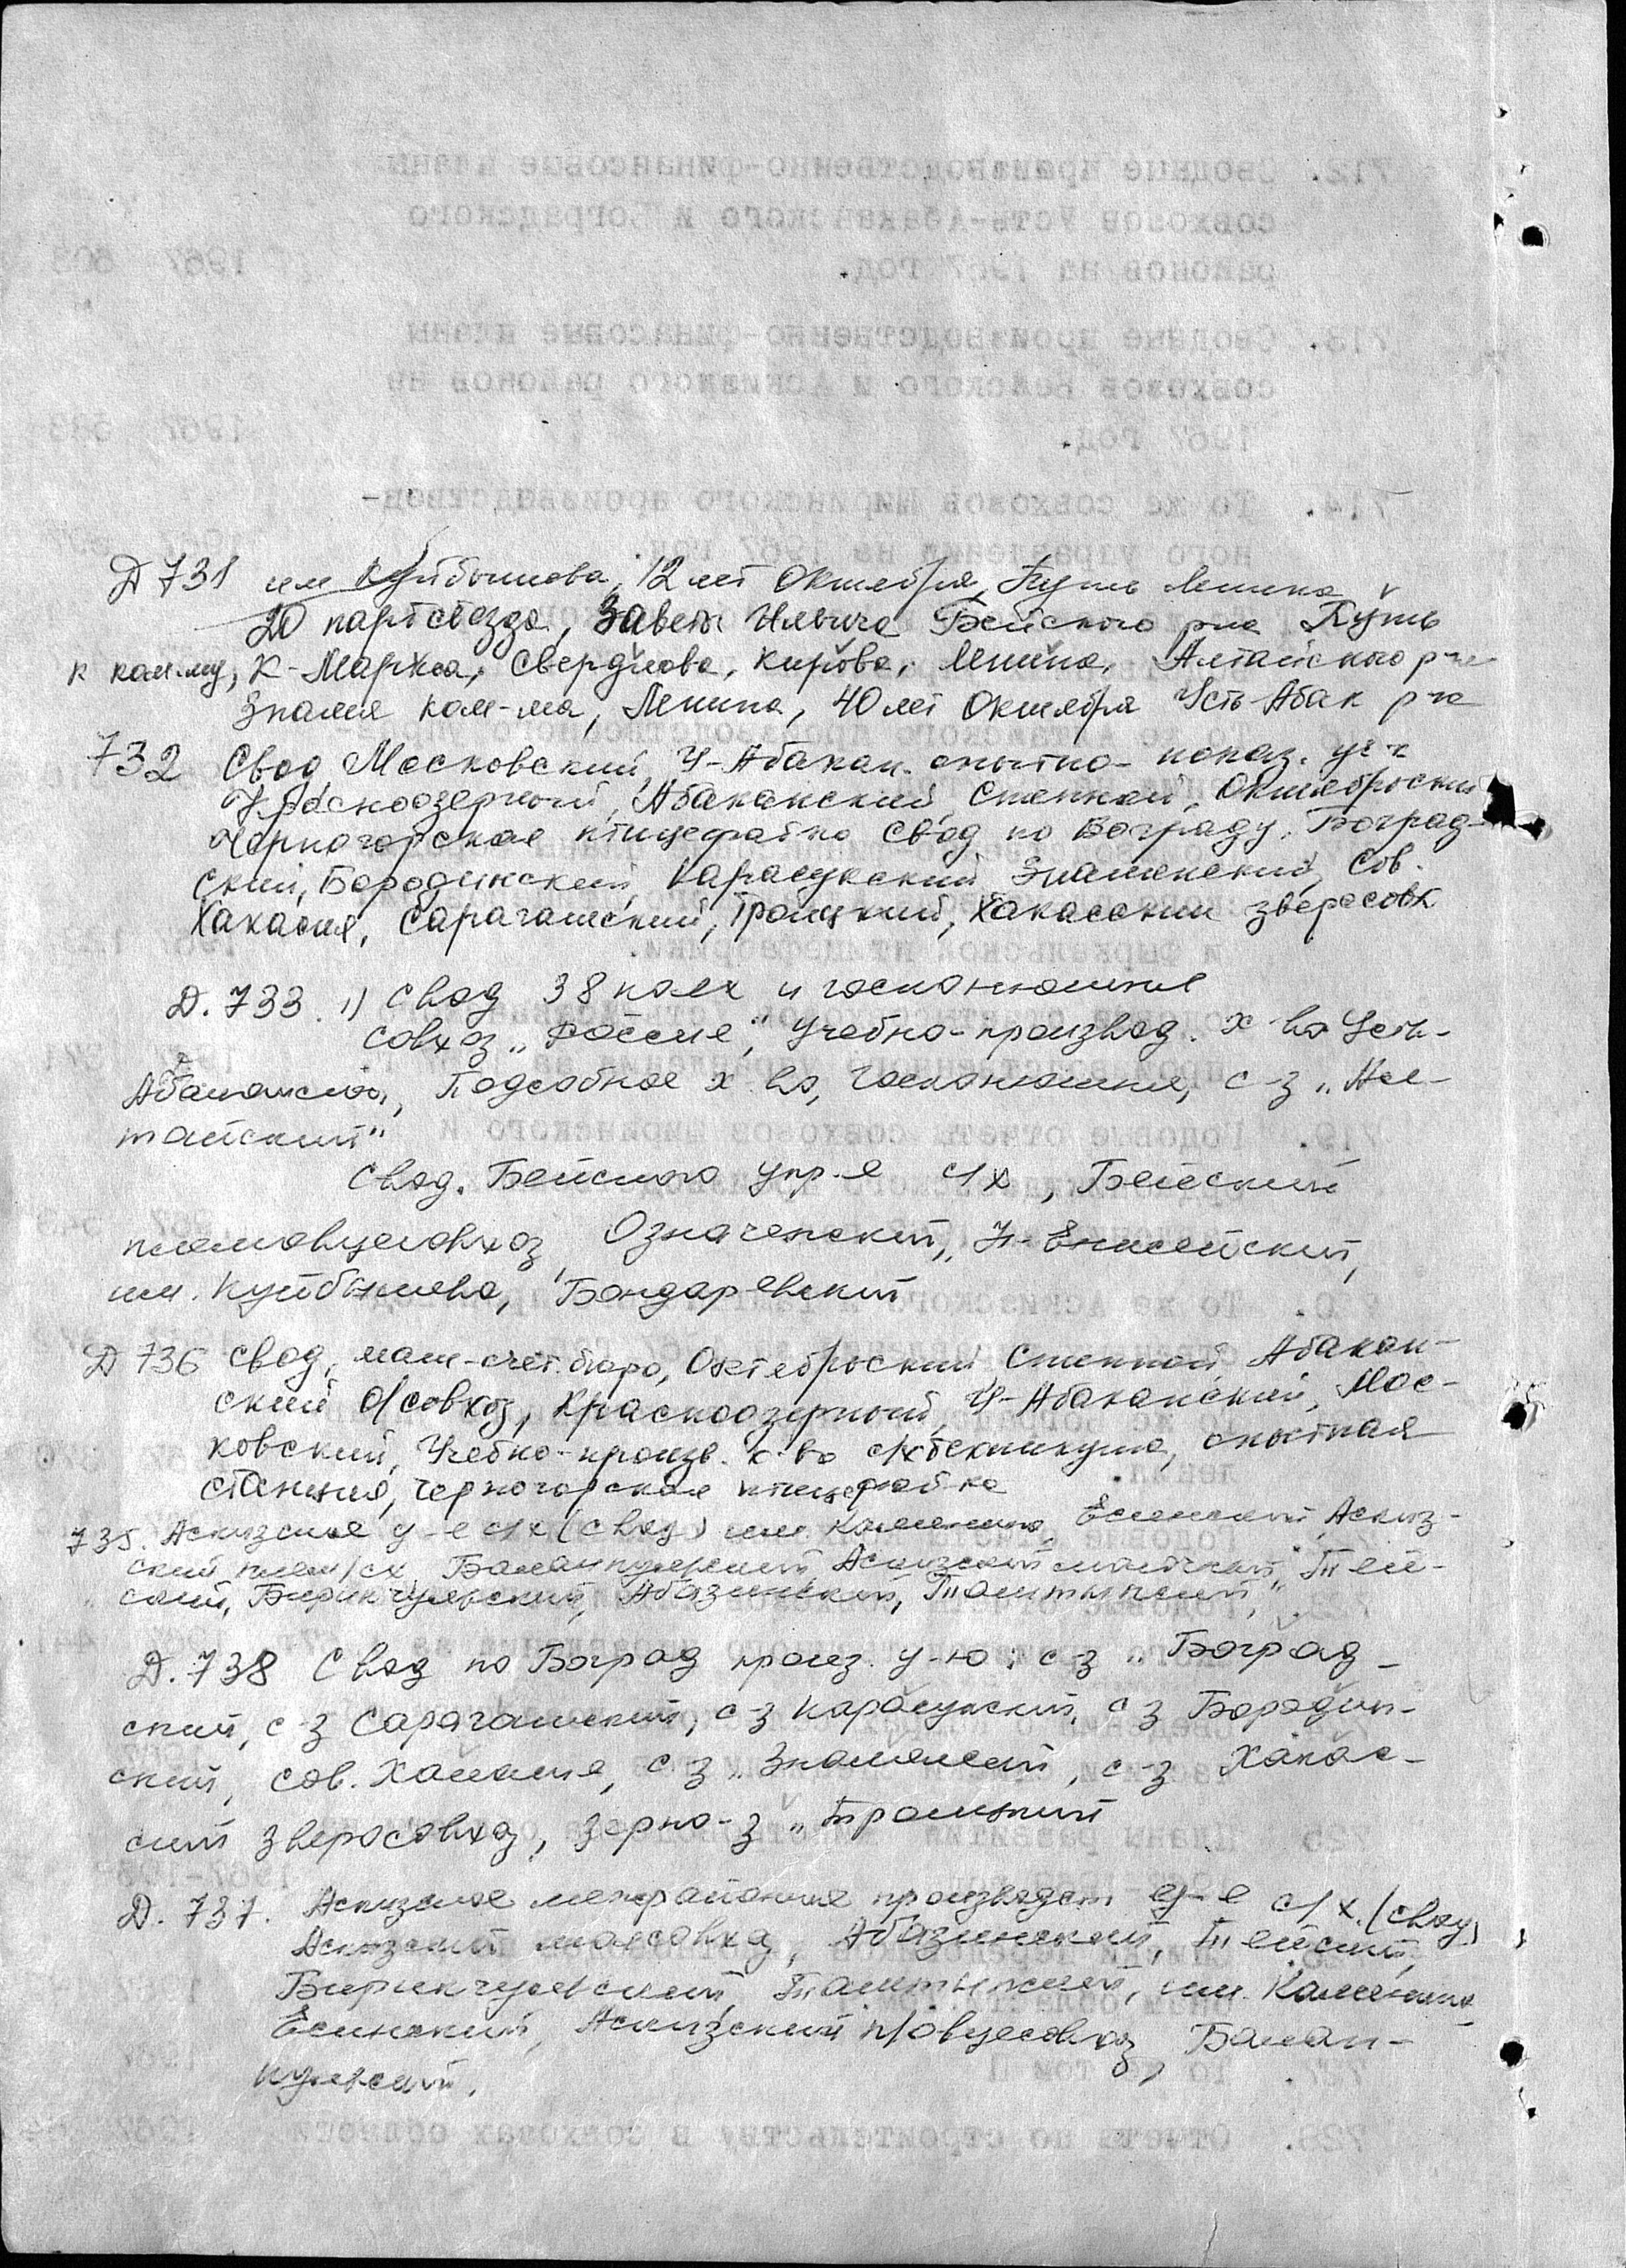 Д 731 им Куйбышева, 12 лет Октября, Путь Ленина
20 партсъезда, Заветы Ильича Бейского р-на Путь
к ком-му, К-Маркса, Свердлова, Кирова, Ленина, Алтайского р-на
Знамя ком-ма, Ленина, 40 лет Октября Усть-Абак р-на
732 Свод Московский, У-Абакан. опытно-показ. уч-к
Красноозерный, Абаканский, Степной, Октябрьский
Черногорская птицефабка Свод по Бограду, Боград-
ский, Бородинский, Карасукский Знаменский, Сов.
Хакасия, Сарагашский, Троицкий, Хакасский зверосовх
Д. 733. 1) Свод 38 колх и госконюшня
совхоз "Россия", Учебно-производ. х-во Усть-
Абаканское, Подсобное х-во, Госконюшня, с-з "Ал-
тайский"
Свод. Бейского упр-я с/х, Бейский
племовцесовхоз, Означенский, Н-Енисейский,
им. Куйбышева, Бондаревский
Д 736 Свод, маш-счет. бюро, Октябрьский, Степной, Абакан-
ский о/совхоз, Красноозерный, У-Абаканский, Мос-
ковский, Учебно-произв. х-во с/х техникума, опытная
станция, Черногорская птицефабка
735. Аскизское у-е с/х (свод) им. Калинина, Есинский, Аскиз-
ский плем/сх, Баланкульский, Аскизский молочный, Тей-
ский, Бирикчульский, Абазинский, Таштыпский",
Д. 738 Свод по Боград произ. у-ю: с-з "Боград-
ский, с-з Сарагашский, с-з Карасукский, с-з Бородин-
ский, Сов. Хакасия, с-з "Знаменский, с-з Хакас-
ский зверосовхоз, зерно-з "Троицкий
Д. 737. Аскизское межрайонное производст у-е с/х. (свод)
Аскизский молсовхоз, Абазинский, Тейский,
Бирикчульский, Таштыпский, им. Калинина
Есинский, Аскизский п/овцесовхоз, Балан-
кульский.